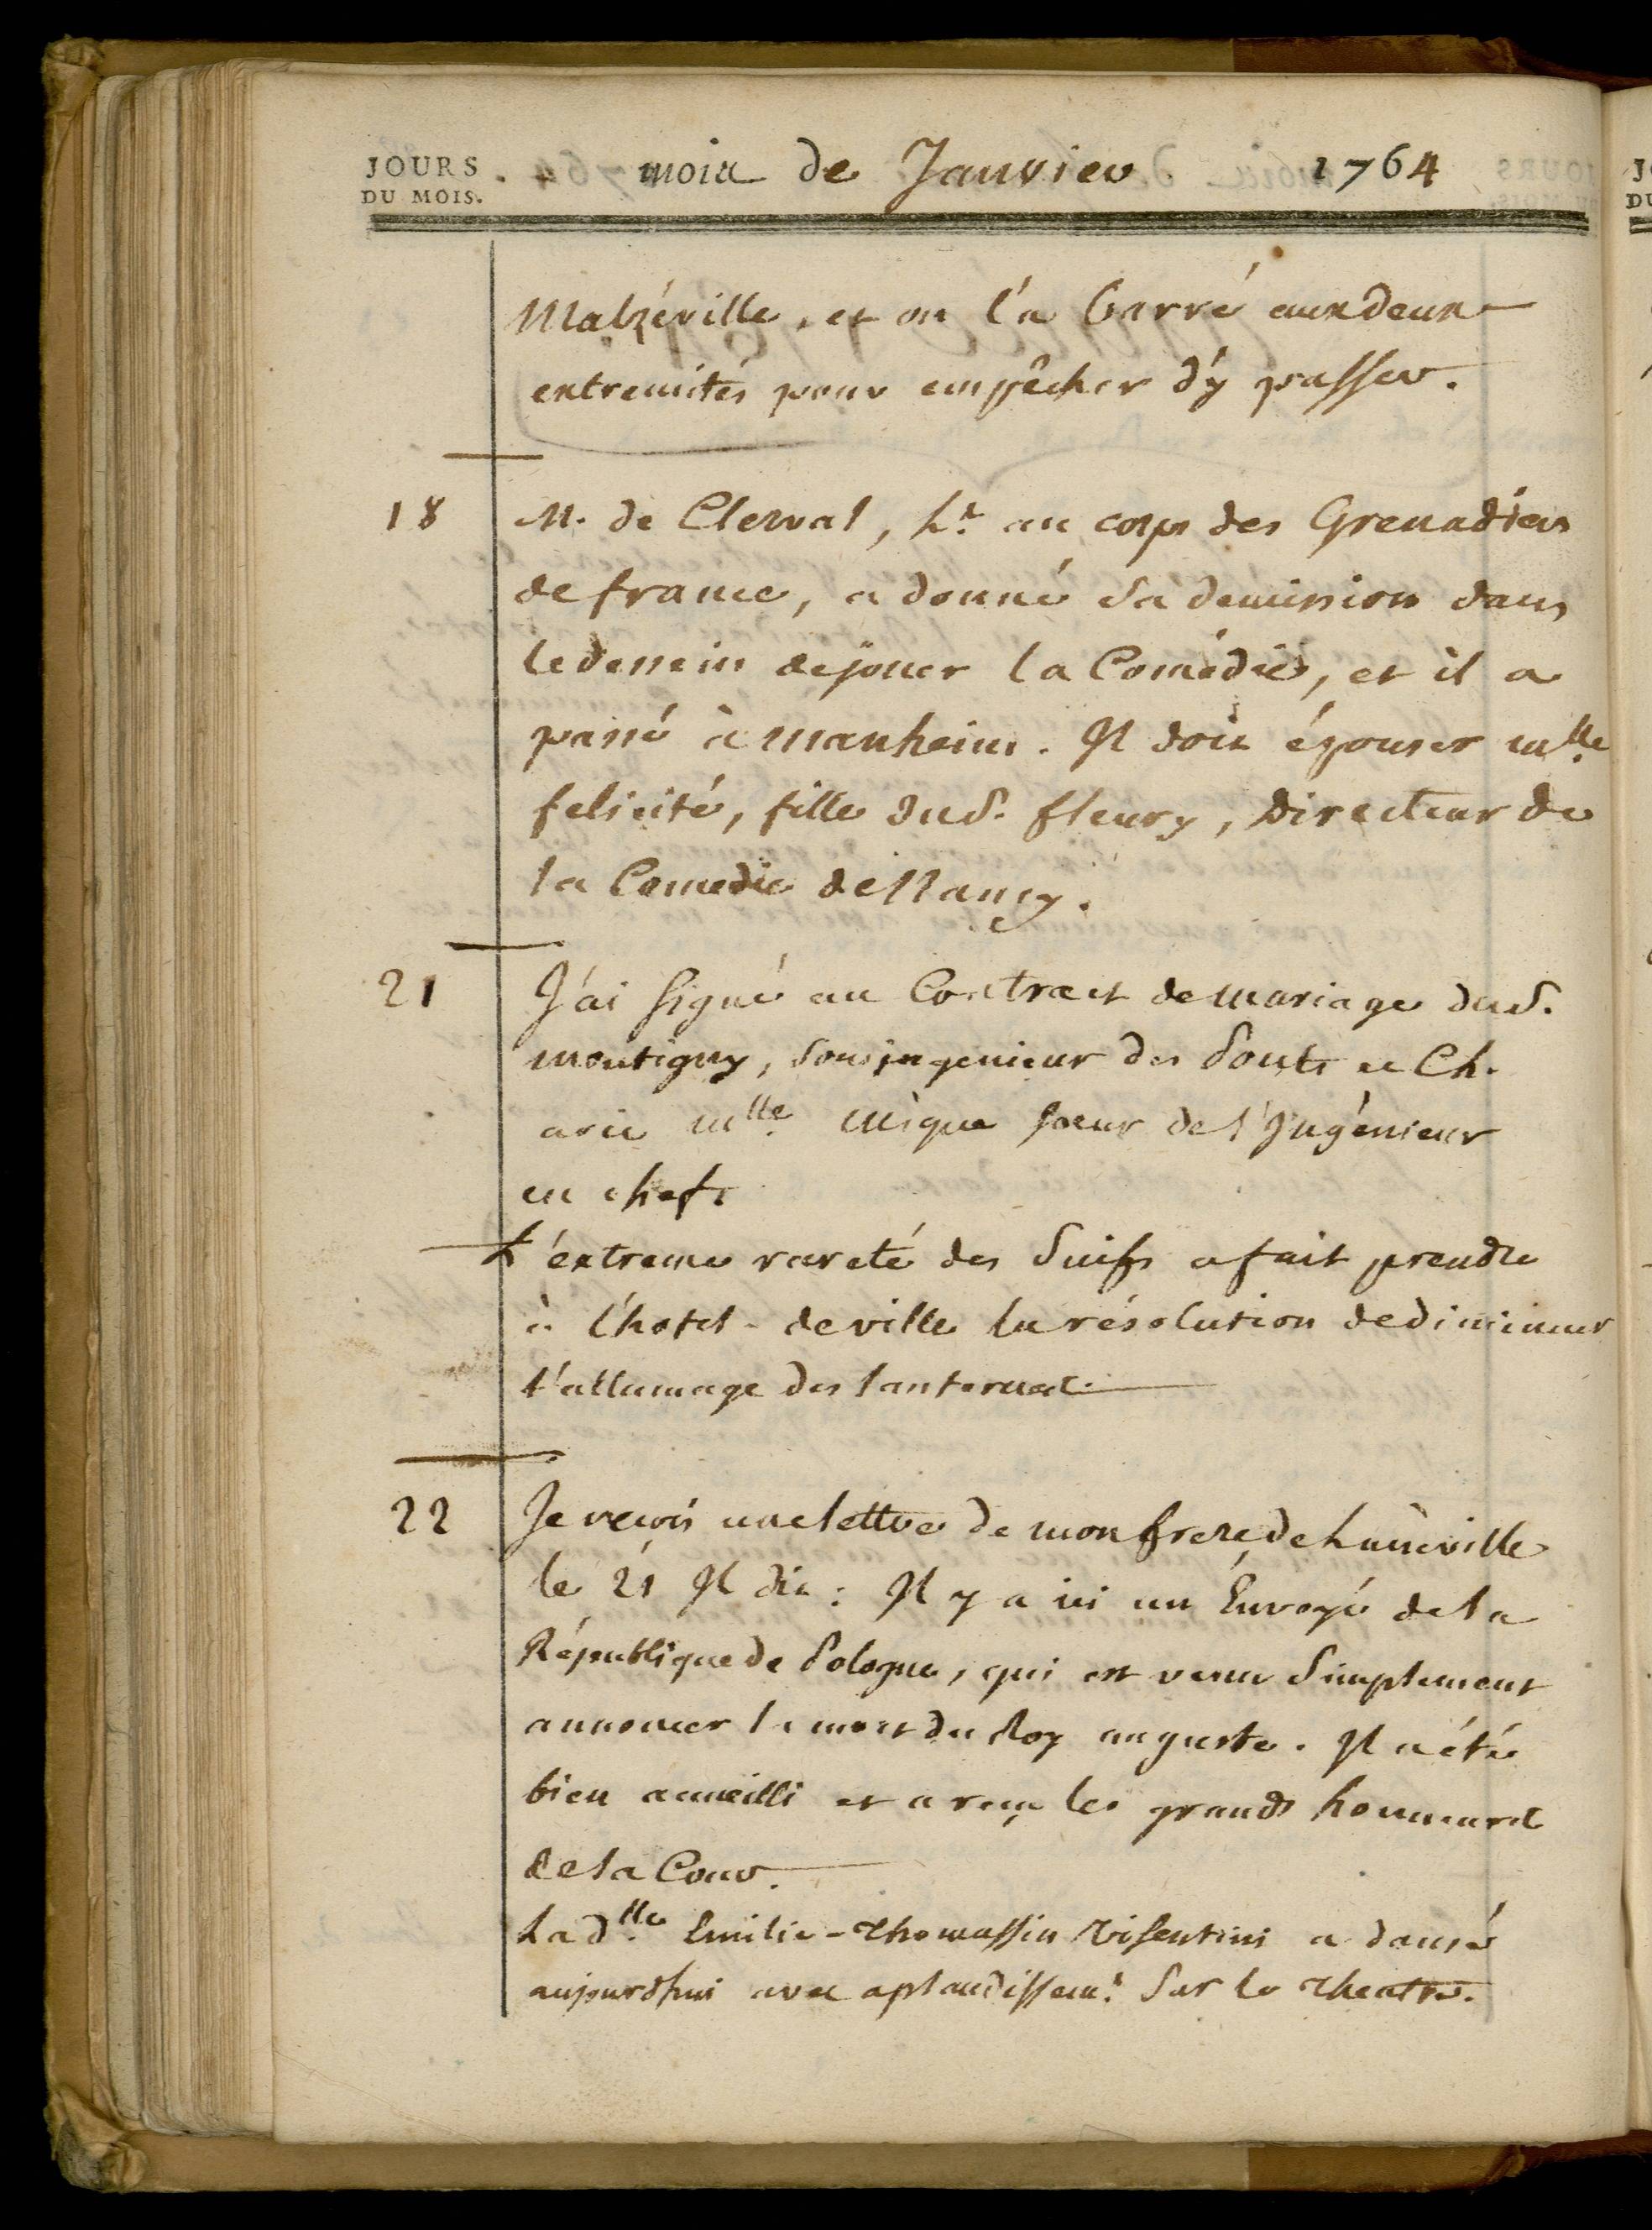 JOURS
DU MOIS.
mois de Janvier 1764
Malzéville, et on l'a barré aux deux
extremités pour empêcher d'y passer.
18
M. de Clerval, Lt. au corps des Grenadiers
de france, a donné sa demission dans
le dessein de joüer la Comédie, et il a
passé à Manheim. Il doit épouser Mlle.
felicité, fille du S. fleury, Directeur de
la Comedie de Nancy.
21
J'ai signé au Contract de mariage du S.
Montigny, sous ingenieur des Ponts et Ch.
avec Mlle. Mique sœur de l'Ingénieur
en chef.
L'extreme rareté des Suifs a fait prendre
à l'hotel-de ville la résolution de diminuer
l'allumage des lanternes.
22
Je reçois une lettre de mon frere de Luneville
le 21 Il dit : Il y a ici un Envoyé de la
République de Pologne, qui est venu simplement
annoncer la mort du Roy auguste. Il a été
bien accueilli et a reçu les grands honneurs
de la Cour.
La dlle. Emilie-Thomassin Visentini a dansé
aujourdhui avec aplaudissemt. sur le Theatre.